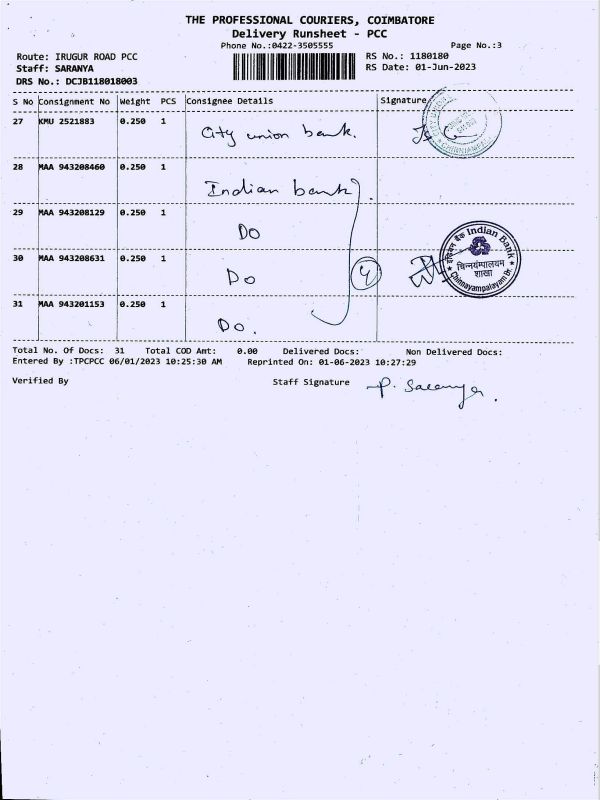 THE PROFESSIONAL COURIERS, COIMBATORE
Delivery Runsheet - PCC
Phone No.:0422-3505555 Page No.:3
Route: IRUGUR ROAD PCC RS No.: 1180180
Staff: SARANYA RS Date: 01-Jun-2023
DRS No.: DCJB118018003
S No Consignment No Weight PCS Consignee Details Signature
27 KMU 2521883 0.250 1 City union bank.
28 MAA 943208460 0.250 1 Indian bank
29 MAA 943208129 0.250 1 DO
30 MAA 943208631 0.250 1 DO 4
इंडियन बैंक Indian Bank
चिन्नयंपालयम
शाखा
Chinnayampalayam Br.
31 MAA 943201153 0.250 1 DO.
Total No. Of Docs: 31 Total COD Amt: 0.00 Delivered Docs: Non Delivered Docs:
Entered By :TPCPCC 06/01/2023 10:25:30 AM Reprinted On: 01-06-2023 10:27:29
Verified By Staff Signature P. Saranya.